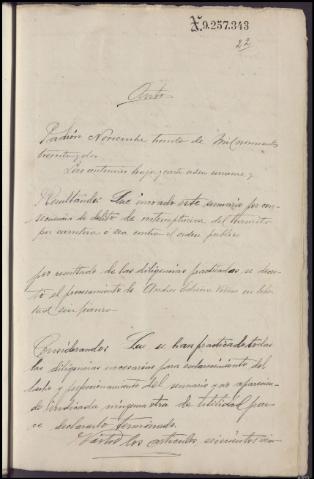 X.9.257.343
22
Auto
Padrón Noviembre treinta de mil novecientos
treinta y dos
Los anteriores
Resultando: Que incoado este sumario por con
secuencia de delito de del
por carretera o sea contra el orden público
por resultado de las diligencias practicadas se decre
tó el procesamiento de Andres en liber
tad sin fianza
Considerando: Que se han practicado todas
las diligencias necesarias para esclarecimiento del
hecho y perfeccionamiento del sumario y no aparecien
do indicada ninguna otra de utilidad para
declararlo terminado.
Vistos los artículos seiscientos